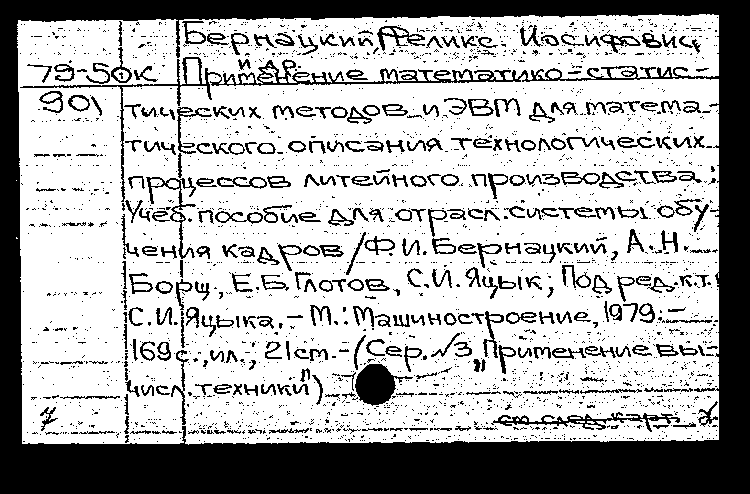 Бернацкий Феликс Иосифович
и др.
79-50К Применение математико-статис-
901 тических методов и ЭВМ для матема-
тического описания технологических
процессов литейного производства:
Учеб. пособие для отрасл. системы обу-
чения кадров / Ф.И. Бернацкий, А.Н.
Борщ, Е.Б. Глотов, С.И. Яцык; Под ред. к.т.
С.И. Яцыка. – М.: Машиностроение, 1979. –
169 с., ил.; 21 см. – (Сер. №3 „Применение вы-
числ. техники")
см. след. карт.